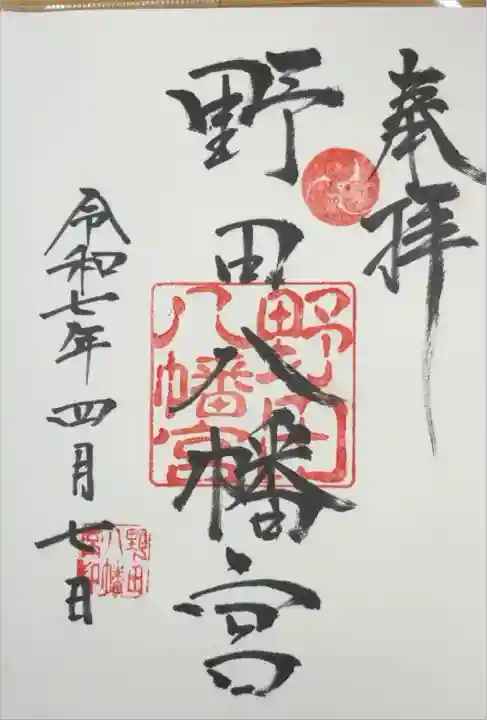 奉拝
野田八幡宮
野田
八幡宮
令和七年四月七日
野田
八幡
宮印